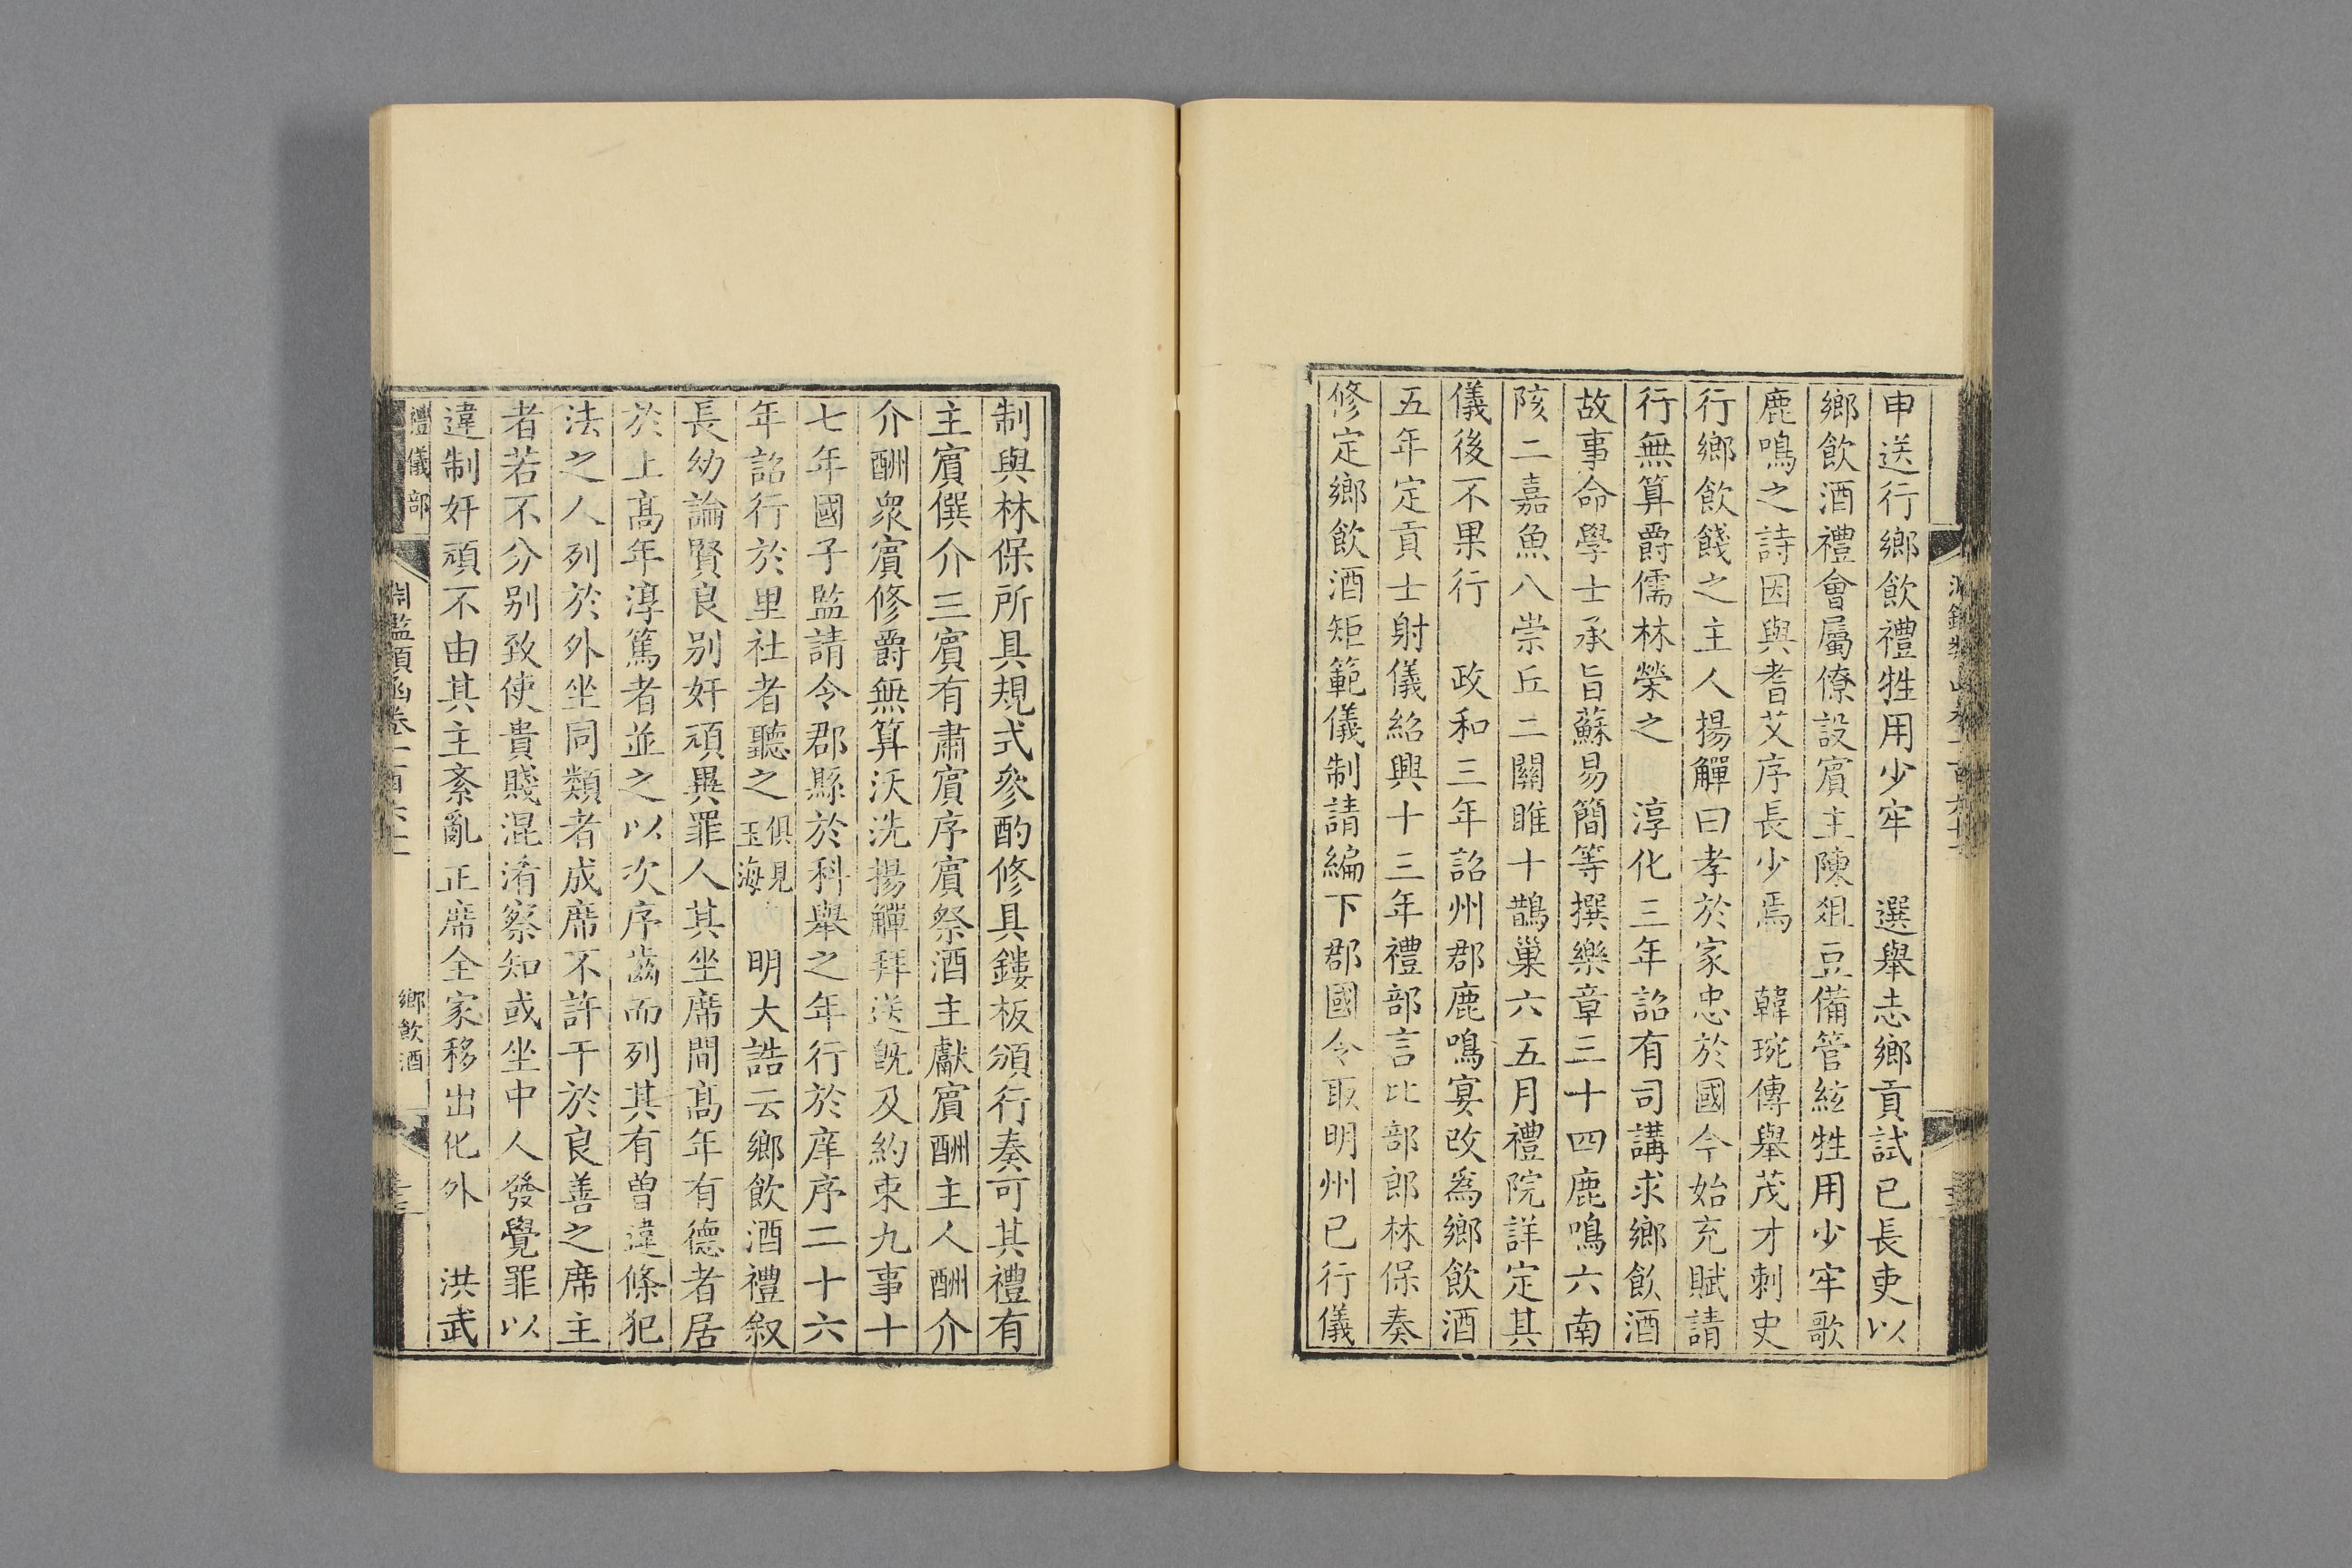 申送行鄉飲禮牲用少牢　選舉志鄉貢試已長吏以
鄉飲酒禮會屬僚設賔主陳俎豆備管絃牲用少牢歌
鹿鳴之詩因與耆艾序長少焉　韓琬傳舉茂才刺史
行鄉飲餞之主人揚觶曰孝於家忠於國今始充賦請
行無算爵儒林榮之　淳化三年詔有司講求鄉飲酒
故事命學士承旨蘇易簡等撰樂章三十四鹿鳴六南
陔二嘉魚八崇丘二關雎十鵲巢六五月禮院詳定其
儀後不果行　政和三年詔州郡鹿鳴宴改爲鄉飲酒
五年定貢士射儀紹興十三年禮部言比部郎林保奏
修定鄉飲酒矩範儀制請編下郡國令取明州已行儀
制與林保所具規式參酌修具鏤板頒行奏可其禮有
主賔僎介三賔有肅賔序賔祭酒主獻賔酬主人酬介
介酬衆賔修爵無算沃洗揚觶拜送旣及約束九事十
七年國子監請令郡縣於科舉之年行於庠序二十六
年詔行於里社者聽之俱見玉海　明大誥云鄉飲酒禮叙
長幼論賢良别奸頑異罪人其坐席間髙年有德者居
於上髙年淳篤者並之以次序齒而列其有曾違條犯
法之人列於外坐同類者成席不許干於良善之席主
者若不分别致使貴賤混淆察知或坐中人發覺罪以
違制奸頑不由其主紊亂正席全家移出化外　洪武
禮儀部
淵鑑類函卷一百六十
鄉飲酒